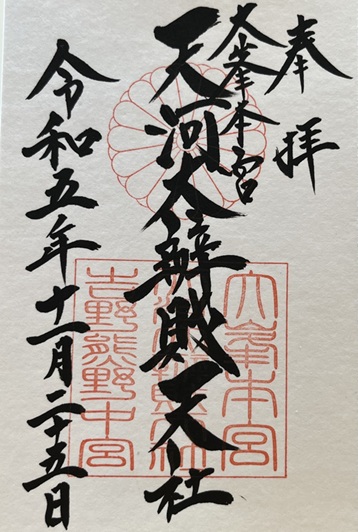 奉拝
大峯本宮
天河大辨財天社
令和五年十一月二十五日
大峯本宮
吉野熊野中宮